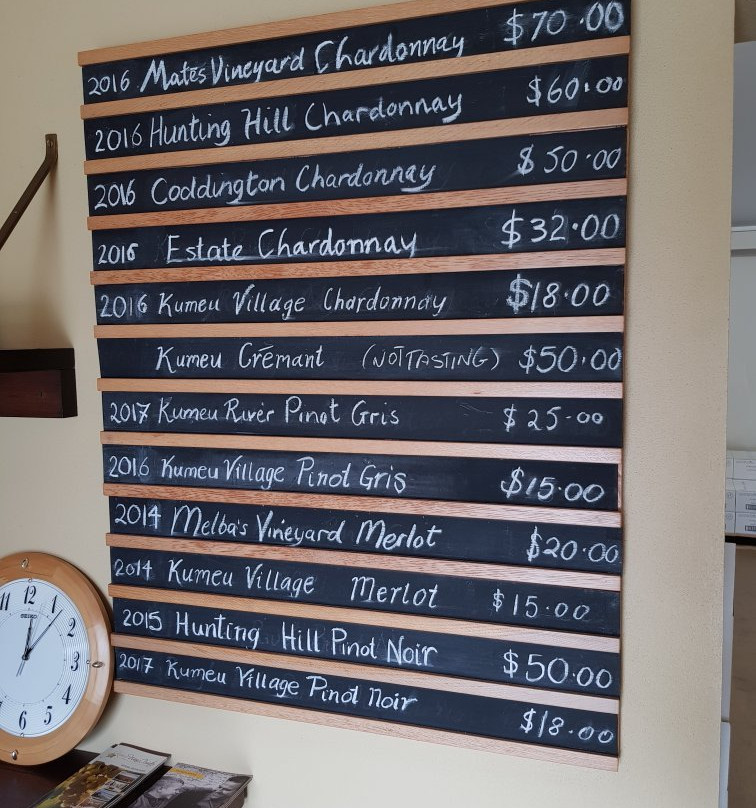 2016 Matés Vineyard Chardonnay $70.00
2016 Hunting Hill Chardonnay $60.00
2016 Coddington Chardonnay $50.00
2016 Estate Chardonnay $32.00
2016 Kumeu Village Chardonnay $18.00
Kumeu Crémant (NOT TASTING) $50.00
2017 Kumeu River Pinot Gris $25.00
2016 Kumeu Village Pinot Gris $15.00
2014 Melba's Vineyard Merlot $20.00
2014 Kumeu Village Merlot $15.00
2015 Hunting Hill Pinot Noir $50.00
2017 Kumeu Village Pinot Noir $18.00
11 12 1
SEIKO
2
3
4
6 5